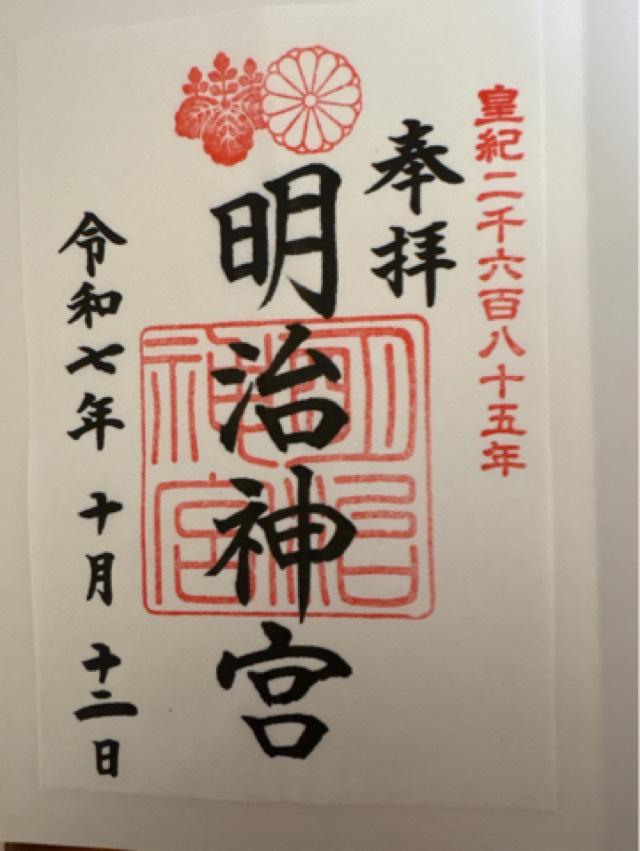 皇紀二千六百八十五年
奉拝
明治神宮
明治神宮
令和七年 十月 十二日